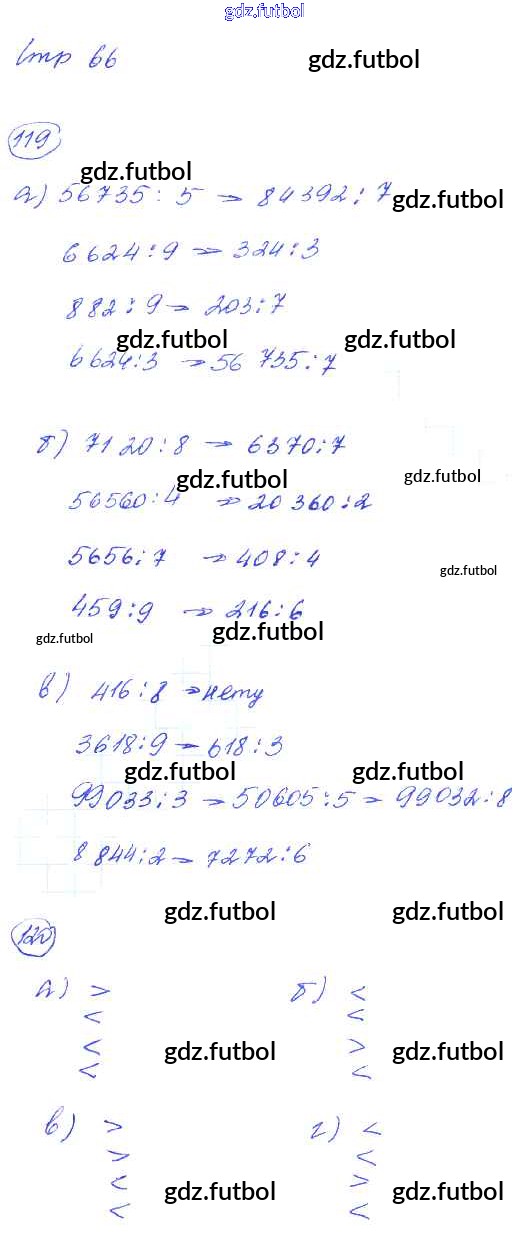 gdz.futbol
Стр 66
gdz.futbol
119
gdz.futbol
а) 56735 : 5 → 84392 : 7
gdz.futbol
6624 : 9 → 324 : 3
882 : 9 → 203 : 7
gdz.futbol gdz.futbol
6624 : 3 → 56 735 : 7
б) 7120 : 8 → 6370 : 7
gdz.futbol gdz.futbol
56560 : 4 → 20 360 : 2
5656 : 7 → 408 : 4
gdz.futbol
459 : 9 → 216 : 6
gdz.futbol gdz.futbol
в) 416 : 8 → нету
3618 : 9 → 618 : 3
gdz.futbol gdz.futbol
99033 : 3 → 50605 : 5 → 99032 : 8
8844 : 2 → 7272 : 6
gdz.futbol gdz.futbol
120
а) > б) <
< <
< >
gdz.futbol gdz.futbol
< <
в) > г) <
> <
< >
gdz.futbol gdz.futbol
< <